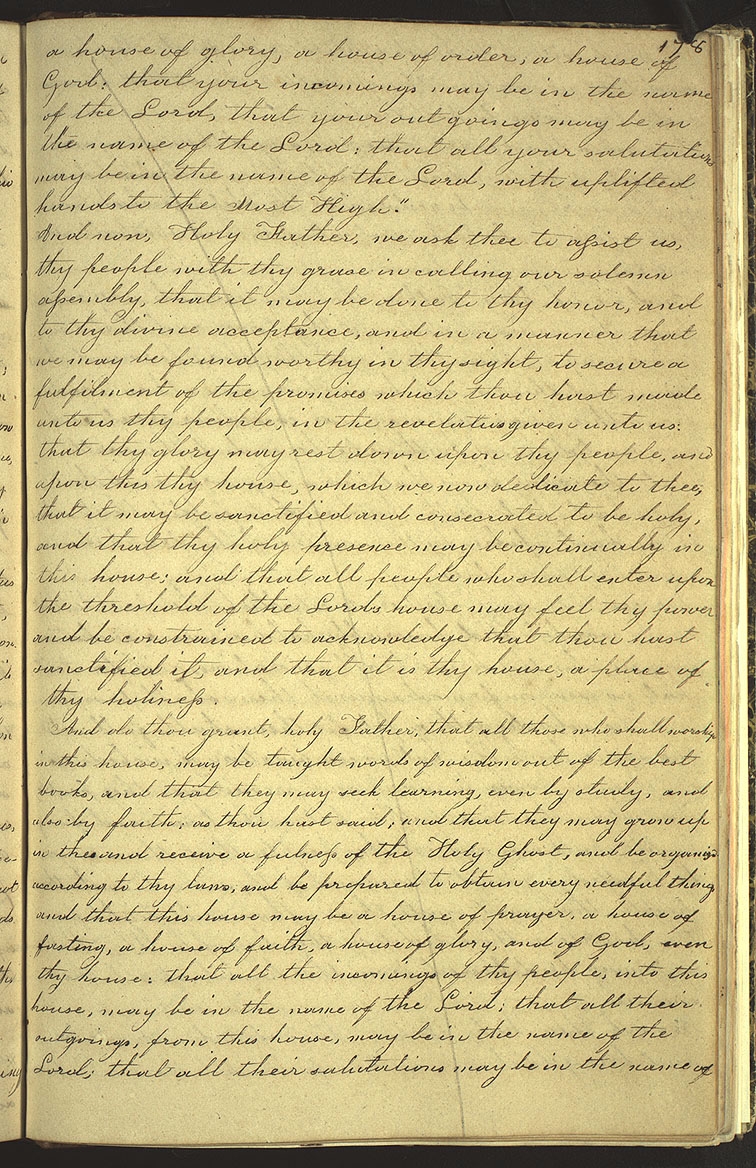 176
a house of glory, a house of order, a house of
God: that your incomings may be in the name
of the Lord, that your out goings may be in
the name of the Lord: that all your salutations
may be in the name of the Lord, with uplifted
hands to the Most High."
And now, Holy Father, we ask thee to assist us,
thy people with thy grase in calling our solemn
assembly, that it may be done to thy honor, and
to thy divine acceptance, and in a manner that
we may be found worthy in thy sight, to secure a
fulfilment of the promises which thou hast made
unto us thy people, in the revelatiosgiven unto us:
that thy glory may rest down upon thy people, and
upon this thy house, which we now dedicate to thee,
that it may be sanctified and consecrated to be holy,
and that thy holy presence may be continually in
this house; and that all people who shall enter upon
the threshold of the Lords house may feel thy power
and be constrained to acknowledge that thou hast
sanctified it, and that it is thy house, a place of
thy holiness.
And do thou grant, holy Father, that all those who shall worship
in this house, may be taught words of wisdom out of the best
books, and that they may seek learning, even by study, and
also by faith; as thou hast said; and that they may grow up
in thee and receive a fulness of the Holy Ghost, and be organized
according to thy laws, and be prepared to obtain every needful thing
and that this house may be a house of prayer, a house of
fasting, a house of faith, a house of glory, and of God, even
thy house: that all the incomings of thy people, into this
house, may be in the name of the Lord; that all their
outgoings, from this house, may be in the name of the
Lord; that all their salutations may be in the name of